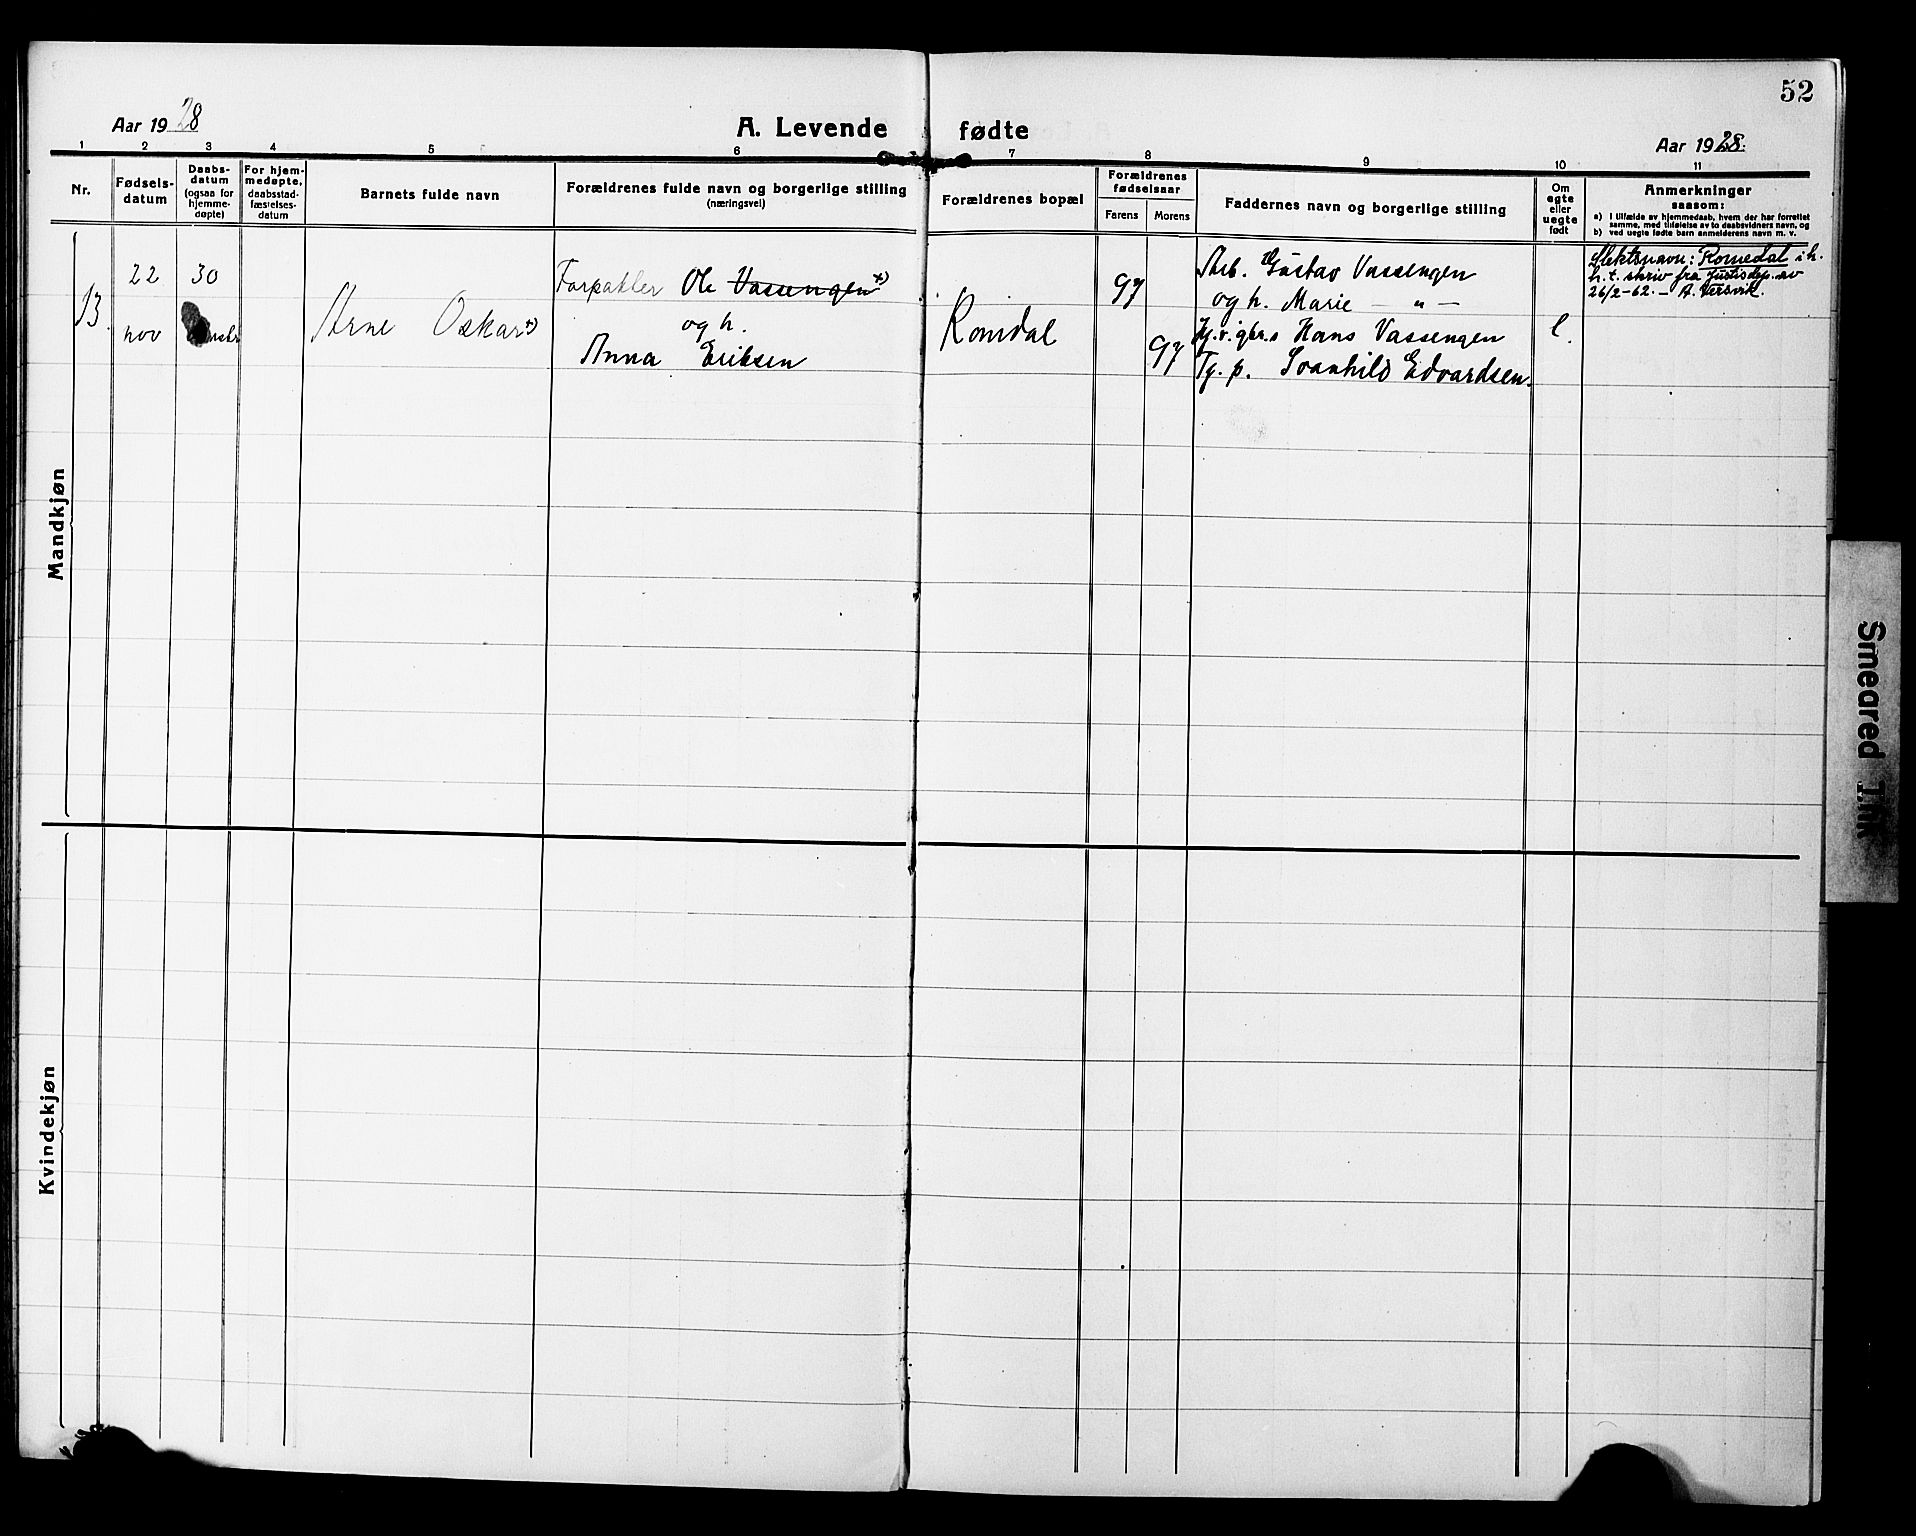 52
Aar 1928
A. Levende fødte
Aar 1928.
1 2 3 4 5 6 7 8 9 10 11
Nr.
Fødsels-
datum
Daabs-
datum
(ogsaa for
hjemme-
døpte)
For hjem-
medøpte,
daabsstad-
fæstelses-
datum
Barnets fulde navn
Forældrenes fulde navn og borgerlige stilling
(næringsvei)
Forældrenes bopæl
Forældrenes
fødselsaar
Farens Morens
Faddernes navn og borgerlige stilling
Om
egte
eller
uegte
født
Anmerkninger
saasom:
a) I tilfælde av hjemmedaab, hvem der har forrettet
samme, med tilføielse av to daabsvidners navn, og
b) ved uegte fødte barn anmelderens navn m. v.
Mandkjøn
13.
22
nov
30
Arne Oskar +)
Forpakter Ole Vassengen +)
og h.
Anna Eriksen
Romdal
97
97
Arb. Gustav Vassengen
og h. Marie — " —
Hans Vassengen
Tg. p. Svanhild Edvardsen.
e.
Slektsnavn: Romedal i h.
h. t. skriv fra Justisdep. av
26/2-62. - A. Versvik.
Kvindekjøn
Smeared Ink